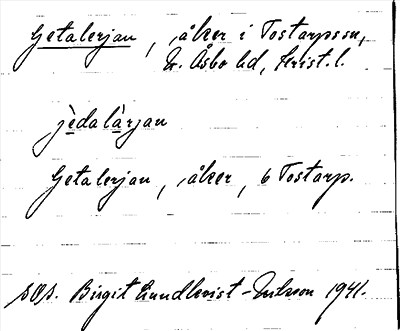 Getalerjan, åker i Tostarps sn,
N. Åsbo hd, Krist. l.
jèdalàrjan
Getalerjan, åker, 6 Tostarp.
SOS. Birgit Lundkvist-Nilsson 1941.